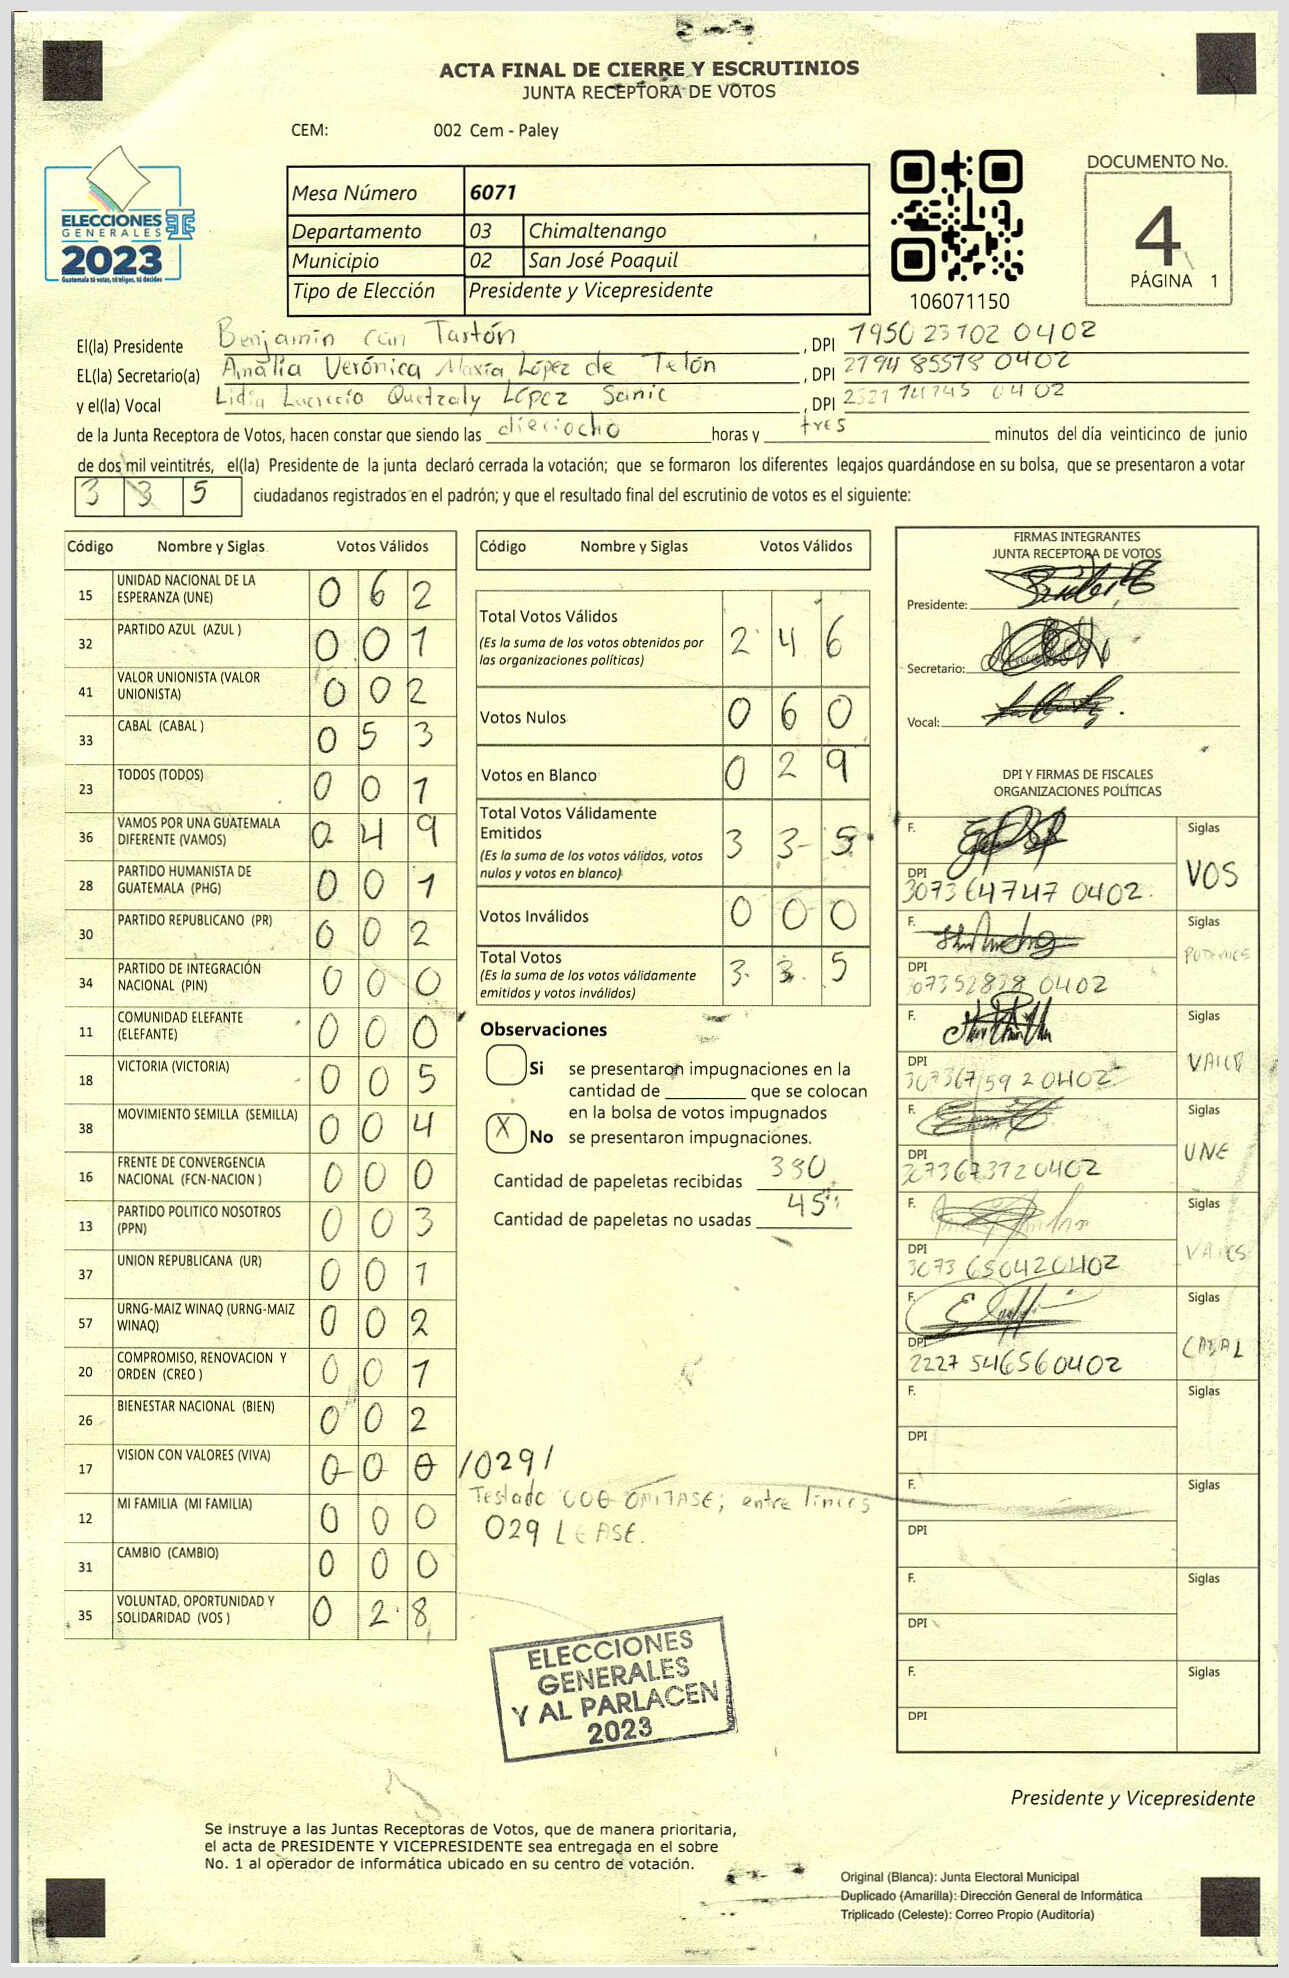 ACTA FINAL DE CIERRE Y ESCRUTINIOS
JUNTA RECEPTORA DE VOTOS
CEM: 002 Cem - Paley
ELECCIONES
GENERALES
2023
Guatemala tú votas, tú eliges, tú decides
Mesa Número 6071
Departamento 03 Chimaltenango
Municipio 02 San José Poaquil
Tipo de Elección Presidente y Vicepresidente
106071150
DOCUMENTO No.
4
PÁGINA 1
El(la) Presidente Benjamín can Tartón , DPI 1950 23702 0402
EL(la) Secretario(a) Amalia Verónica María López de Telón , DPI 2794 85578 0402
y el(la) Vocal Lidia Lucrecia Quetzaly López Sanic , DPI 0402
de la Junta Receptora de Votos, hacen constar que siendo las dieciocho horas y tres minutos del día veinticinco de junio
de dos mil veintitrés, el(la) Presidente de la junta declaró cerrada la votación; que se formaron los diferentes legajos quardándose en su bolsa, que se presentaron a votar
3 3 5 ciudadanos registrados en el padrón; y que el resultado final del escrutinio de votos es el siguiente:
Código Nombre y Siglas Votos Válidos
15 UNIDAD NACIONAL DE LA ESPERANZA (UNE) 0 6 2
32 PARTIDO AZUL (AZUL ) 0 0 1
41 VALOR UNIONISTA (VALOR UNIONISTA) 0 0 2
33 CABAL (CABAL ) 0 5 3
23 TODOS (TODOS) 0 0 1
36 VAMOS POR UNA GUATEMALA DIFERENTE (VAMOS) 0 4 9
28 PARTIDO HUMANISTA DE GUATEMALA (PHG) 0 0 1
30 PARTIDO REPUBLICANO (PR) 0 0 2
34 PARTIDO DE INTEGRACIÓN NACIONAL (PIN) 0 0 0
11 COMUNIDAD ELEFANTE (ELEFANTE) 0 0 0
18 VICTORIA (VICTORIA) 0 0 5
38 MOVIMIENTO SEMILLA (SEMILLA) 0 0 4
16 FRENTE DE CONVERGENCIA NACIONAL (FCN-NACION ) 0 0 0
13 PARTIDO POLITICO NOSOTROS (PPN) 0 0 3
37 UNION REPUBLICANA (UR) 0 0 1
57 URNG-MAIZ WINAQ (URNG-MAIZ WINAQ) 0 0 2
20 COMPROMISO, RENOVACION Y ORDEN (CREO ) 0 0 1
26 BIENESTAR NACIONAL (BIEN) 0 0 2
17 VISION CON VALORES (VIVA) 0 0 0 /029/
12 MI FAMILIA (MI FAMILIA) 0 0 0
31 CAMBIO (CAMBIO) 0 0 0
35 VOLUNTAD, OPORTUNIDAD Y SOLIDARIDAD (VOS ) 0 2 8
Código Nombre y Siglas Votos Válidos
Total Votos Válidos 2 4 6
(Es la suma de los votos obtenidos por
las organizaciones políticas)
Votos Nulos 0 6 0
Votos en Blanco 0 2 9
Total Votos Válidamente
Emitidos 3 3 5
(Es la suma de los votos válidos, votos
nulos y votos en blanco)
Votos Inválidos 0 0 0
Total Votos 3 3 5
(Es la suma de los votos válidamente
emitidos y votos inválidos)
Observaciones
Si se presentaron impugnaciones en la
cantidad de ________ que se colocan
en la bolsa de votos impugnados
X No se presentaron impugnaciones.
Cantidad de papeletas recibidas 380
Cantidad de papeletas no usadas 45
Testado 000 OMITASE; entre lineas
029 LEASE.
ELECCIONES
GENERALES
Y AL PARLACEN
2023
FIRMAS INTEGRANTES
JUNTA RECEPTORA DE VOTOS
Presidente:
Secretario:
Vocal:
DPI Y FIRMAS DE FISCALES
ORGANIZACIONES POLÍTICAS
F. Siglas
VOS
DPI
3073 64747 0402
F. Siglas
DPI
07352838 0402
F. Siglas
VALOR
DPI
307367159 2 0402
F. Siglas
UNE
DPI
3073673720402
F. Siglas
DPI
3073 650420402
F. Siglas
CABAL
DPI
2227 546560402
F. Siglas
DPI
F. Siglas
DPI
F. Siglas
DPI
F. Siglas
DPI
Presidente y Vicepresidente
Se instruye a las Juntas Receptoras de Votos, que de manera prioritaria,
el acta de PRESIDENTE Y VICEPRESIDENTE sea entregada en el sobre
No. 1 al operador de informática ubicado en su centro de votación.
Original (Blanca): Junta Electoral Municipal
Duplicado (Amarilla): Dirección General de Informática
Triplicado (Celeste): Correo Propio (Auditoría)